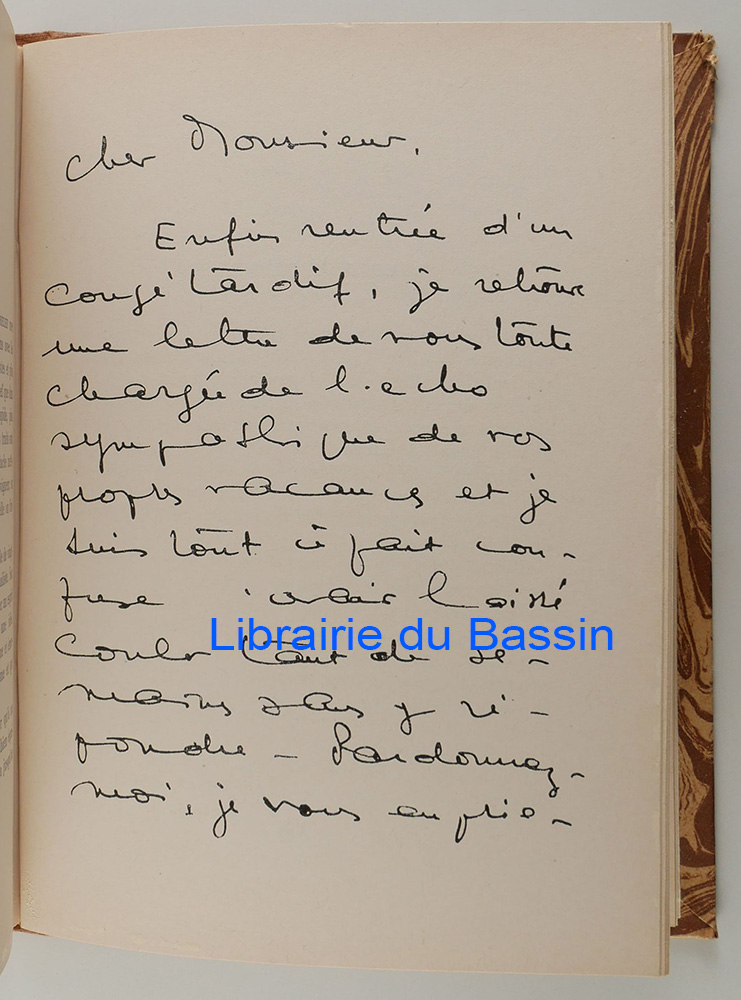 Cher Monsieur,
Enfin rentrée d'un
congé tardif, je retrouve
une lettre de vous toute
chargée de l'echo
sympathique de vos
propres vacances et je
suis tout à fait con-
fuse d'avoir laissé
Librairie du Bassin
couler tant de se-
maines sans y ré-
pondre - Pardonnez-
moi, je vous en prie -